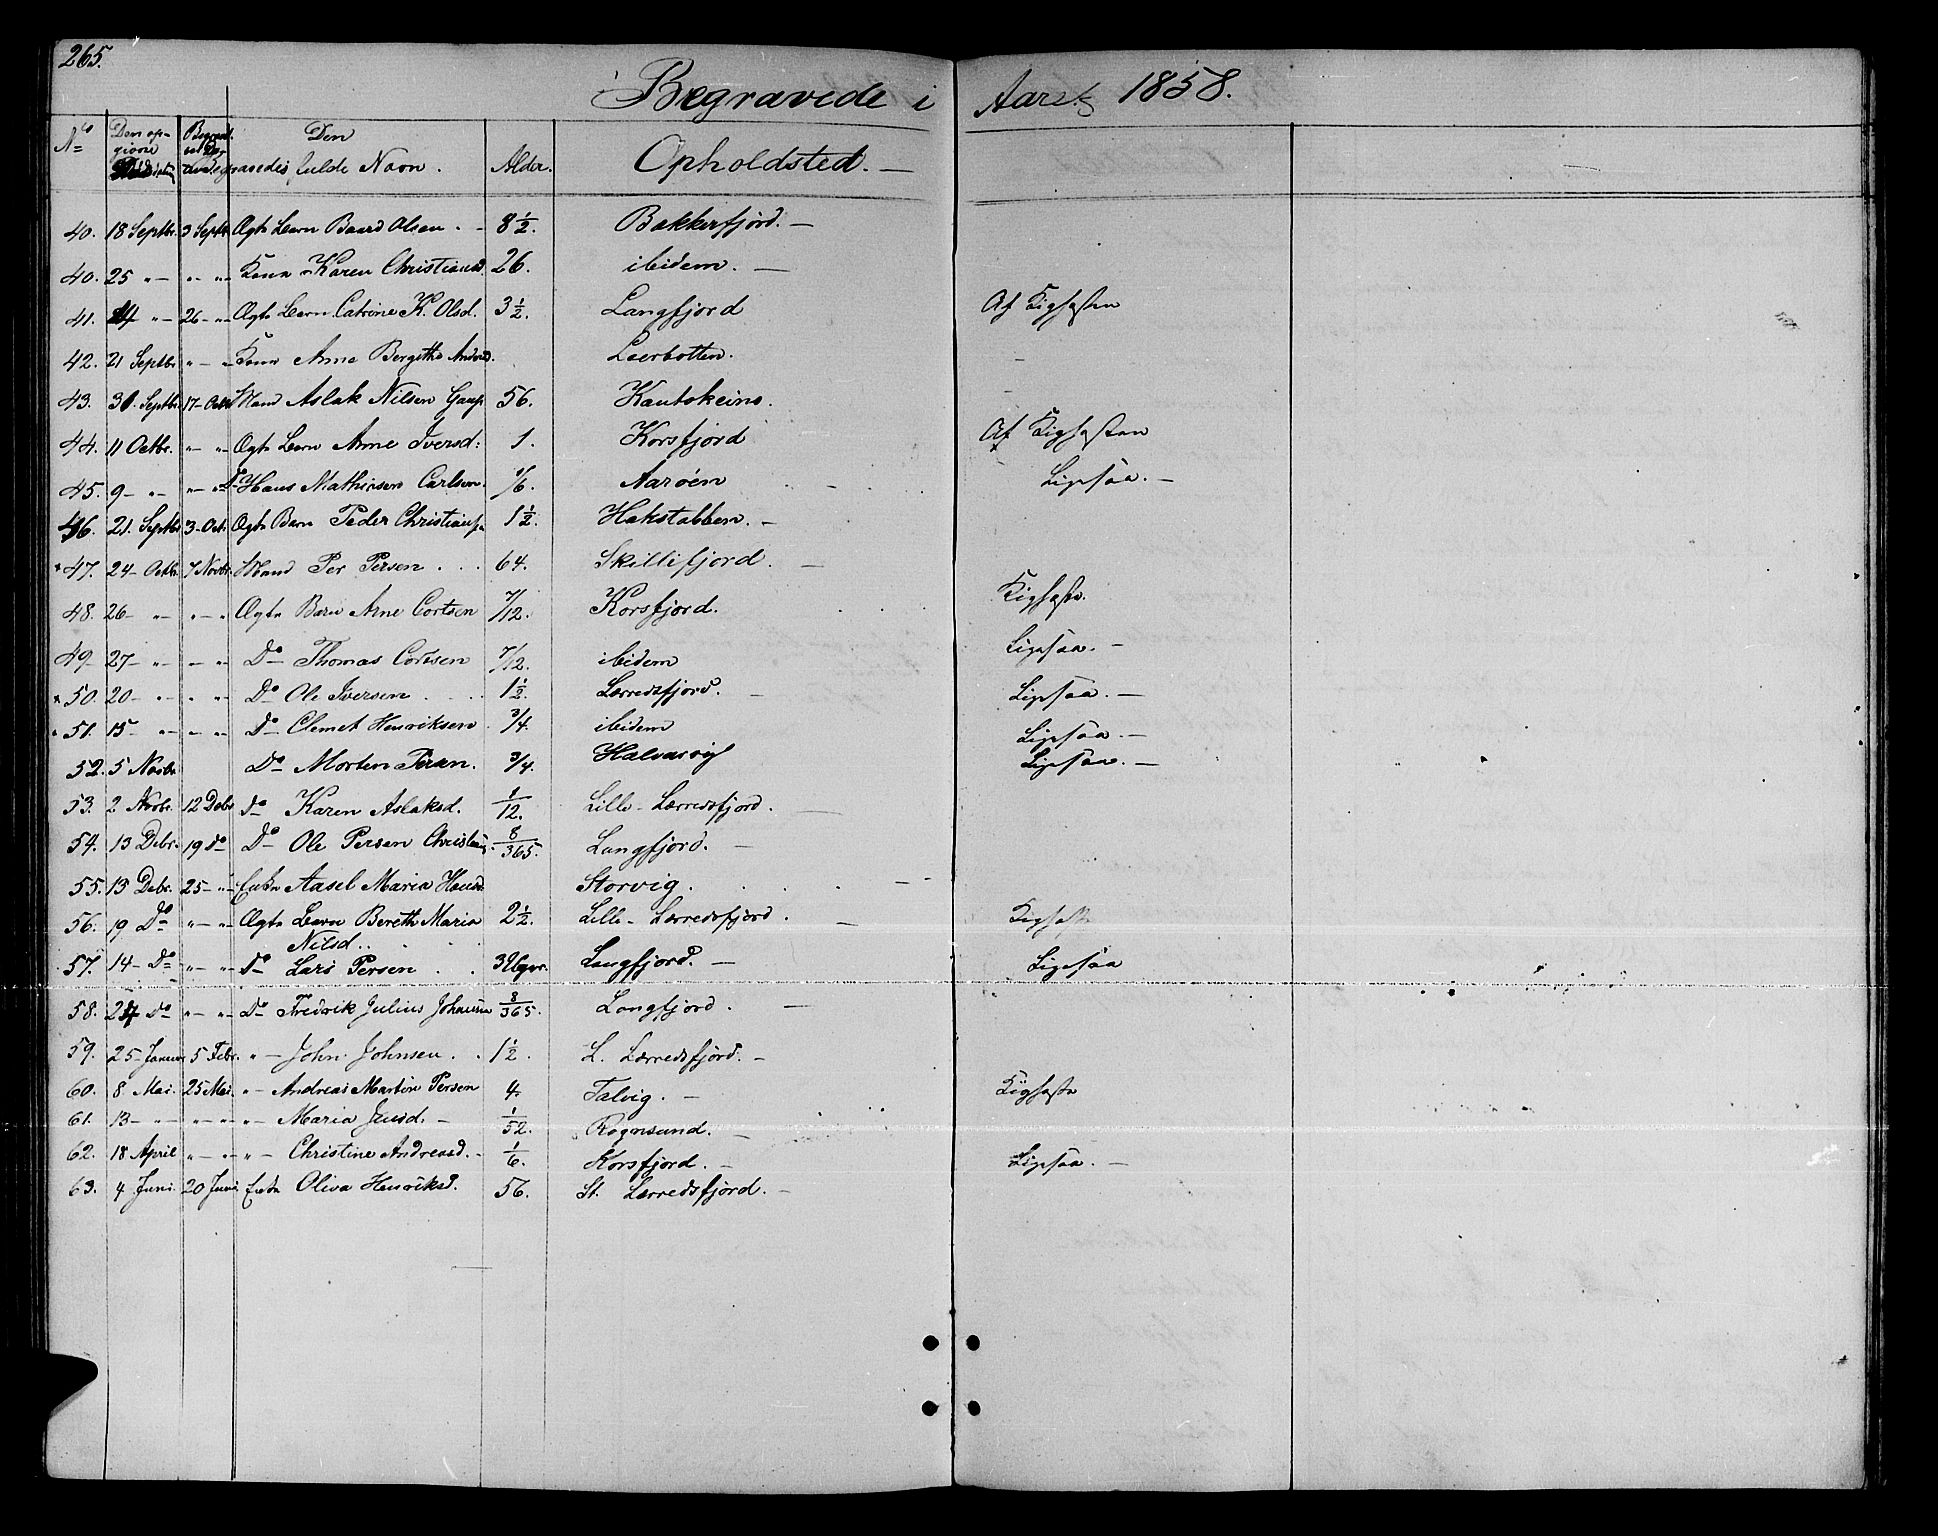 265.
Begravede i Aaret 1858.
No Den opgivne Begravelses Dag Den Begravedes fulde Navn. Alder. Opholdsted. —
40. 18 Septbr. 3 Septbr. Ægte Barn Baard Olsen 8 1/2. Bakkerfjord. —
40. 25 " — " " Kone Karen Christiansd. 26. ibidem. —
41. 24 " — 26 — " Ægte Barn Catrine K. Olsd. 3 1/2. Langfjord Af Kighoste
42. 21 Septbr. " — " Kone Anne Bergithe Andersd. Leerbotten.
43. 31. Septbr. 17 — Octbr. Mand Aslak Nilsen Gaup 56. Kautokeino.
44. 11 Octbr. " — " Ægte Barn Anne Iversd: 1. Korsfjord Af Kighosten
45. 9 — " — " — " Do Hans Mathiesen Carlsen. 1/6. Aarøen Ligesaa. —
46. 21. Septbr. 3 — Oct. Ægte Barn Peder Christiansen 1 1/2. Hakstabben. —
* 47. 24 — Octbr. 7 Novbr. Mand Per Persen 64. Skillifjord. —
48. 26 — " — " — " Ægte Barn Arne Cortsen 7/12. Korsfjord. Kighoste.
49 — 27 — " — " — " Do Thomas Cortsen 7/12. ibidem Ligesaa. —
* 50. 20 — " — " " Do Ole Iversen 1 1/2. Lærredsfjord. — Ligesaa. —
51. 15 — " — " — " Do Clemet Henriksen 3/4. ibidem Ligesaa. —
52. 5 Novbr. Do Morten Persen. 3/4. Halvarvig Ligesaa. —
53. 2 Novbr. 12 Debr. Do Karen Aslaksd. 1/12. Lille - Lærredsfjord. —
54. 13 Debr. 19 Do Do Ole Persen Christians. 8/365. Langfjord. —
55. 13 Debr. 25 — " — Enke Aasel Maria Hansd. Storvig. —
56. 19 Do " — " Ægte Barn Bereth Maria 2 1/2. Lille - Lærredsfjord. — Kighoste
Nilsd.
57. 14 — Do " — " Do Lars Persen 3 Uger. Langfjord. — Ligesaa
58. 24 Do " — " Do Fredrik Julius Johansen 8/365. Langfjord. —
59. 25 — Januar 5 Febr. " — John Johnsen 1 1/2. L. Lærredsfjord. —
60. 8 Mai. 25 Mai. " — Andreas Martin Persen 4. Talvig. — Kighoste
61. 13 — " — " — " " — Maria Jensd. — 1/52. Rognsund. —
62. 18 April " — " " — Christine Andreasd. — 1/6. Korsfjord. — Ligesaa. —
63. 4 Juni. 20 Juni Enke Oliva Henriksd. 56. St. Lærredsfjord. —